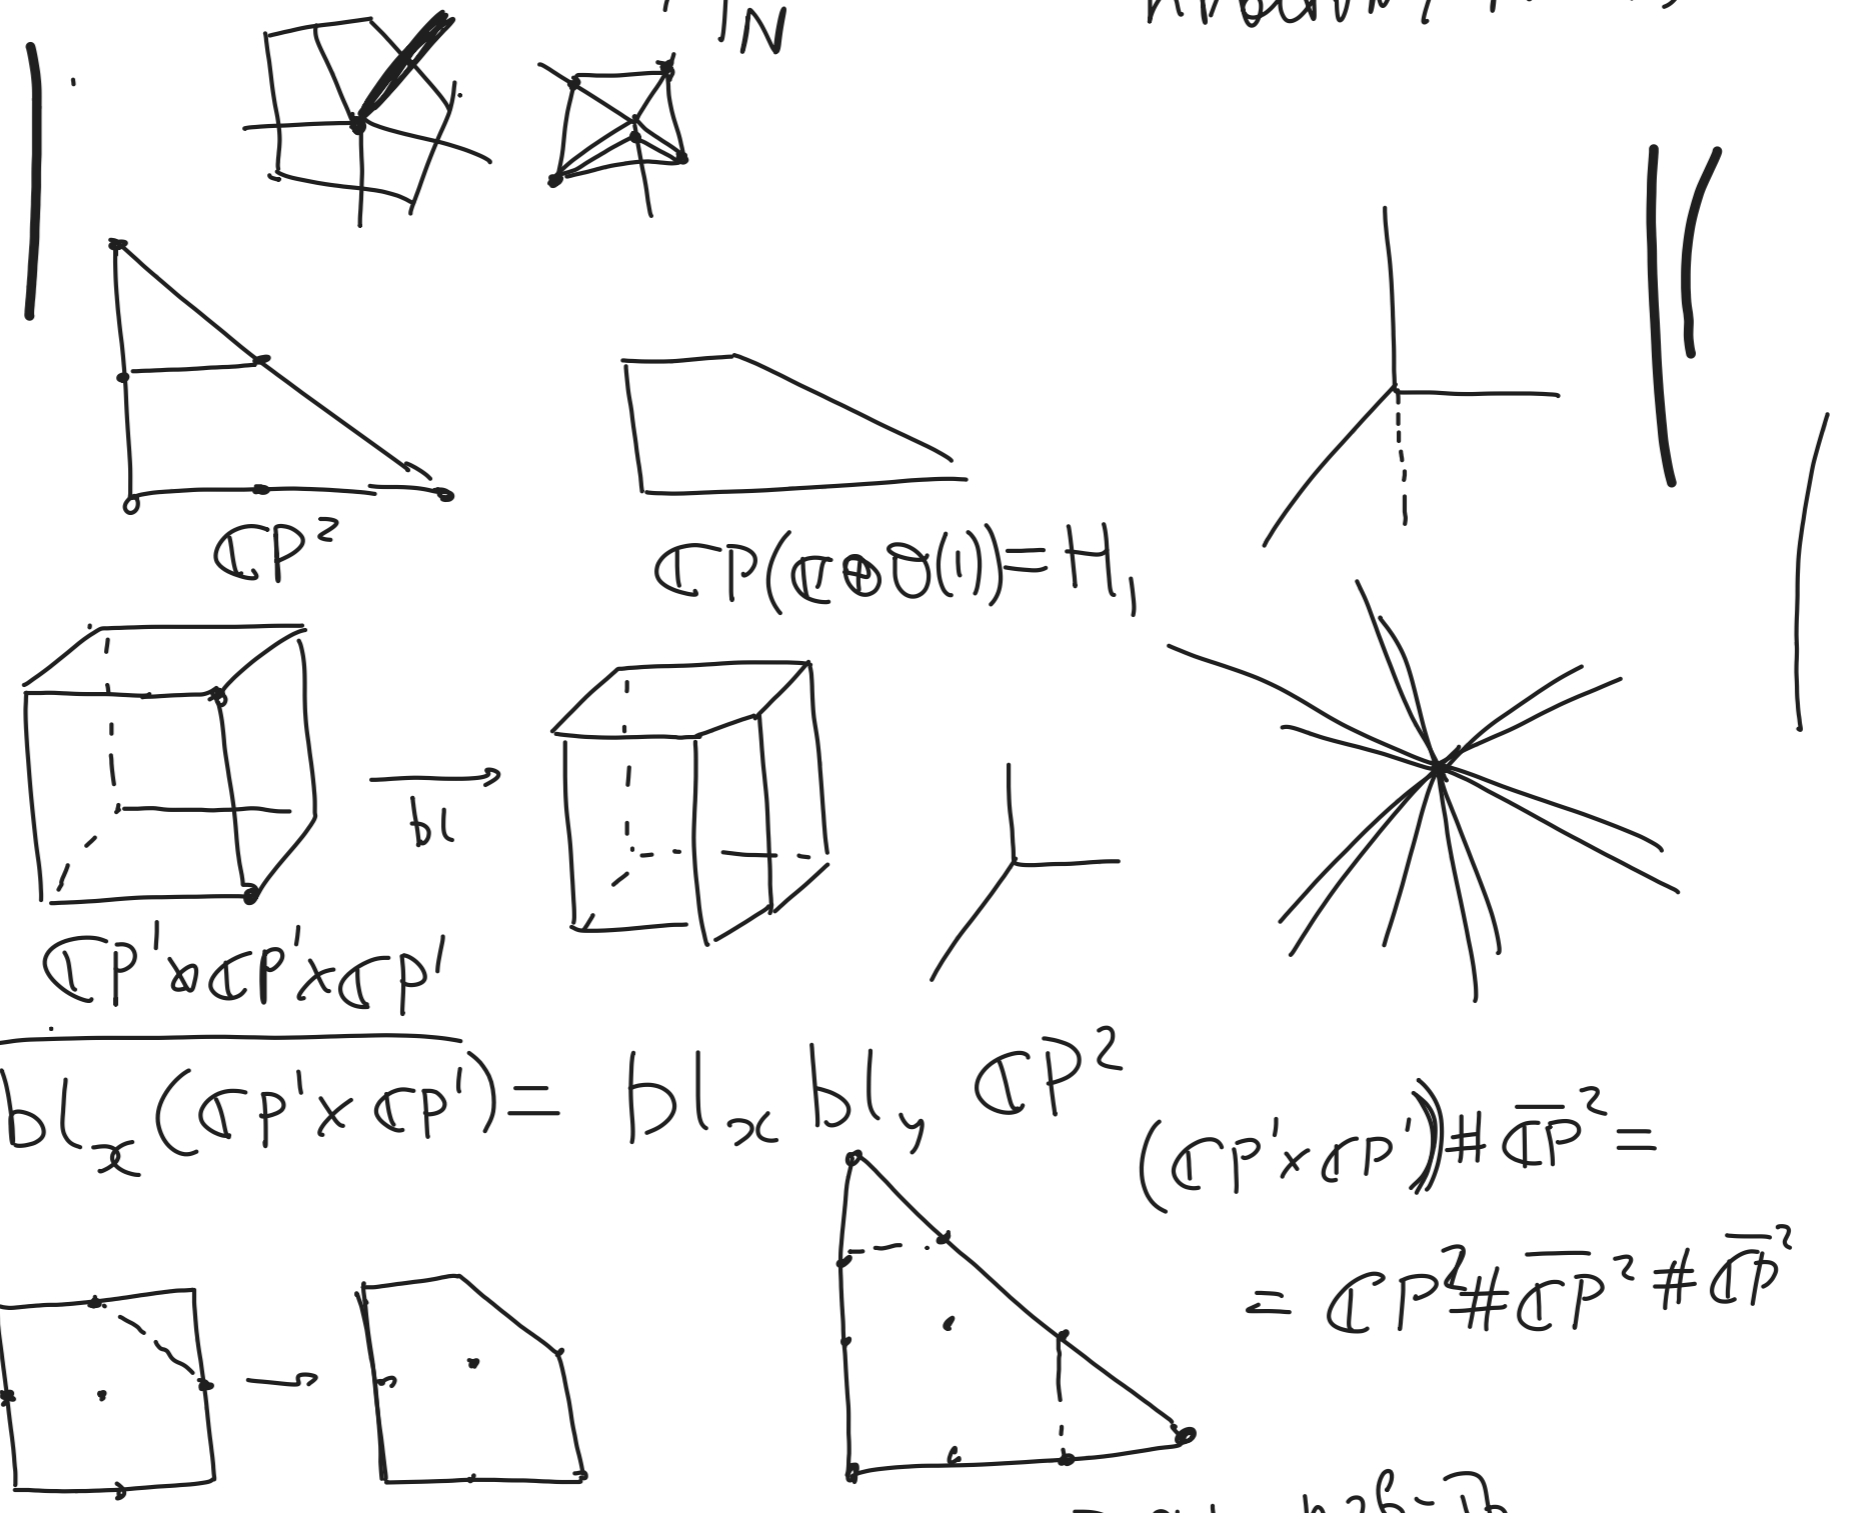 N
ℂP²
ℂP(ℂ⊕O(1)) = H₁
bl
ℂP¹×ℂP¹×ℂP¹
bl_x(ℂP¹×ℂP¹) = bl_x bl_y ℂP²
(ℂP¹×ℂP¹)#\overline{ℂP}² =
= ℂP²#\overline{ℂP}²#\overline{ℂP}²